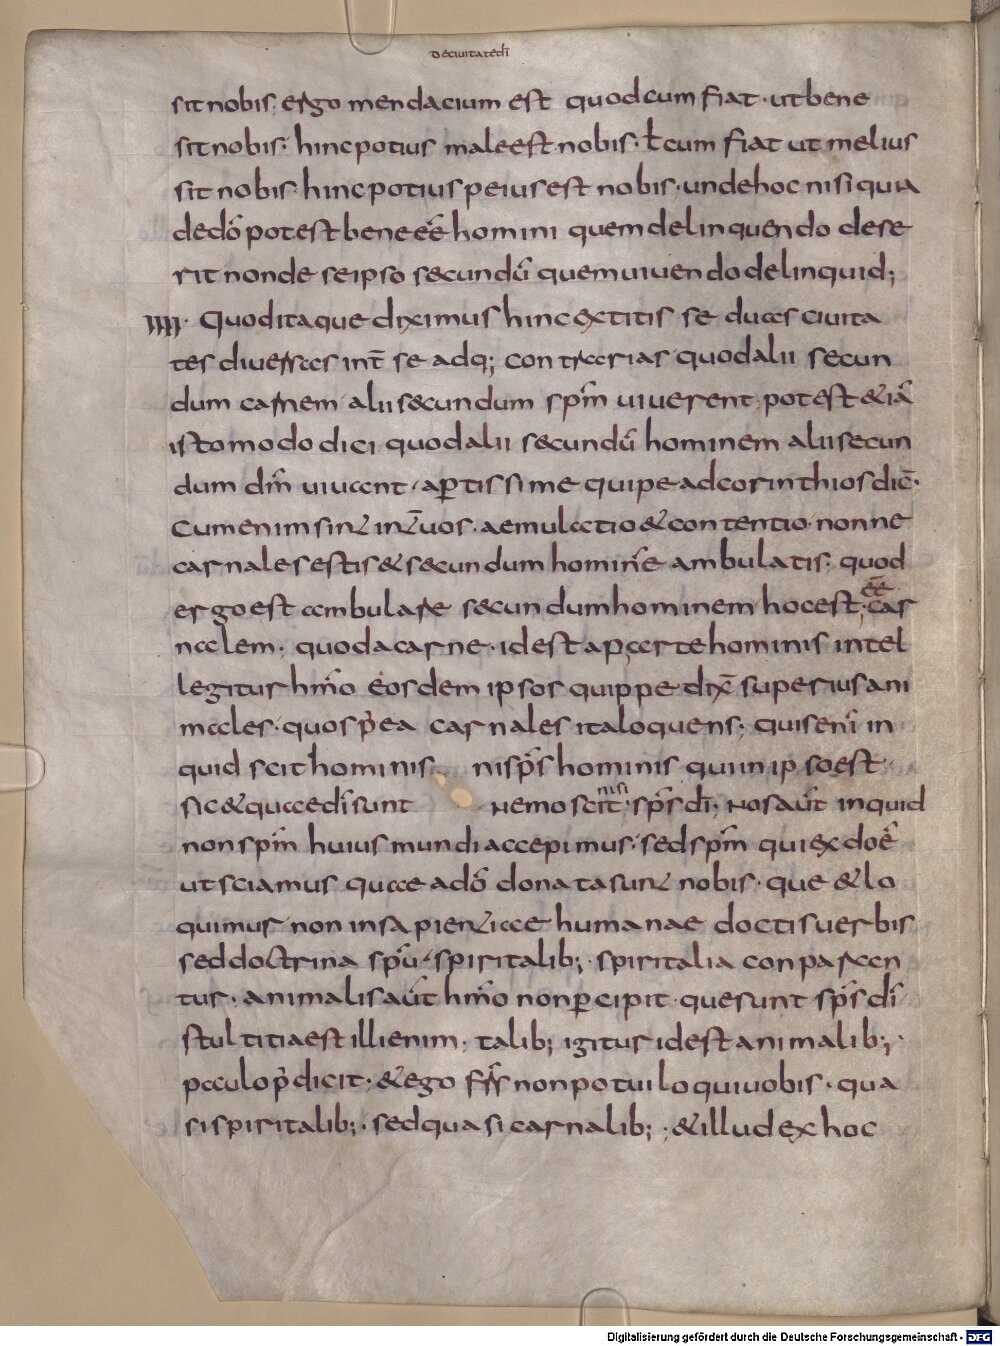 De ciuitate dī
sit nobis; ergo mendacium est quod cum fiat · ut bene
sit nobis · hinc potius male est nobis · ł cum fiat ut melius
sit nobis · hinc potius peius est nobis · unde hoc nisi quia
de dō potest bene ēē homini quem delinquendo dese
rit non de se ipso secundū quem uiuendo delinquid;
IIII · Quod itaque diximus hinc extitis se duas ciuita
tes diuersas int̄ se adq; contrarias quod alii secun
dum carnem alii secundum sp̄m uiuerent · potest & iā
isto modo dici quod alii secundū hominem alii secun
dum dm̄ uiuant · apertissime quipe ad corinthios dic̄ ·
Cum enim sint int̄ uos · aemulatio & contentio · nonne
carnales estis & secundum homine ambulatis; quod
ergo est ambulare secundum hominem hoc est; ēē car
nalem; quod a carne · id est a parte hominis intel
legitur hm̄o eosdem ipsos quippe dix̄ superius ani
males · quos p̄ea carnales ita loquens; quis enī in
quid scit hominis nisp̄s hominis qui in ipso est ·
sic & quae dī sunt nemo scit nisi · sp̄s dī; nos aūt inquid
non sp̄m huius mundi accepimus · sed sp̄m qui ex do ē
ut sciamus quae a dō donata sunt nobis · que & lo
quimur non in sapientiae humanae doctis uerbis
sed doctrina sp̄u · spiritalib; · spiritalia conparan
tur · animalis aūt hm̄o non percipit · que sunt sp̄s dī
stultitia est illi enim; talib; igitur id est animalib; ·
paulo p̄ dicit · & ego fr̄s non potui loqui uobis · qua
si spiritalib; · sed quasi carnalib; · & illud ex hoc
Digitalisierung gefördert durch die Deutsche Forschungsgemeinschaft - DFG